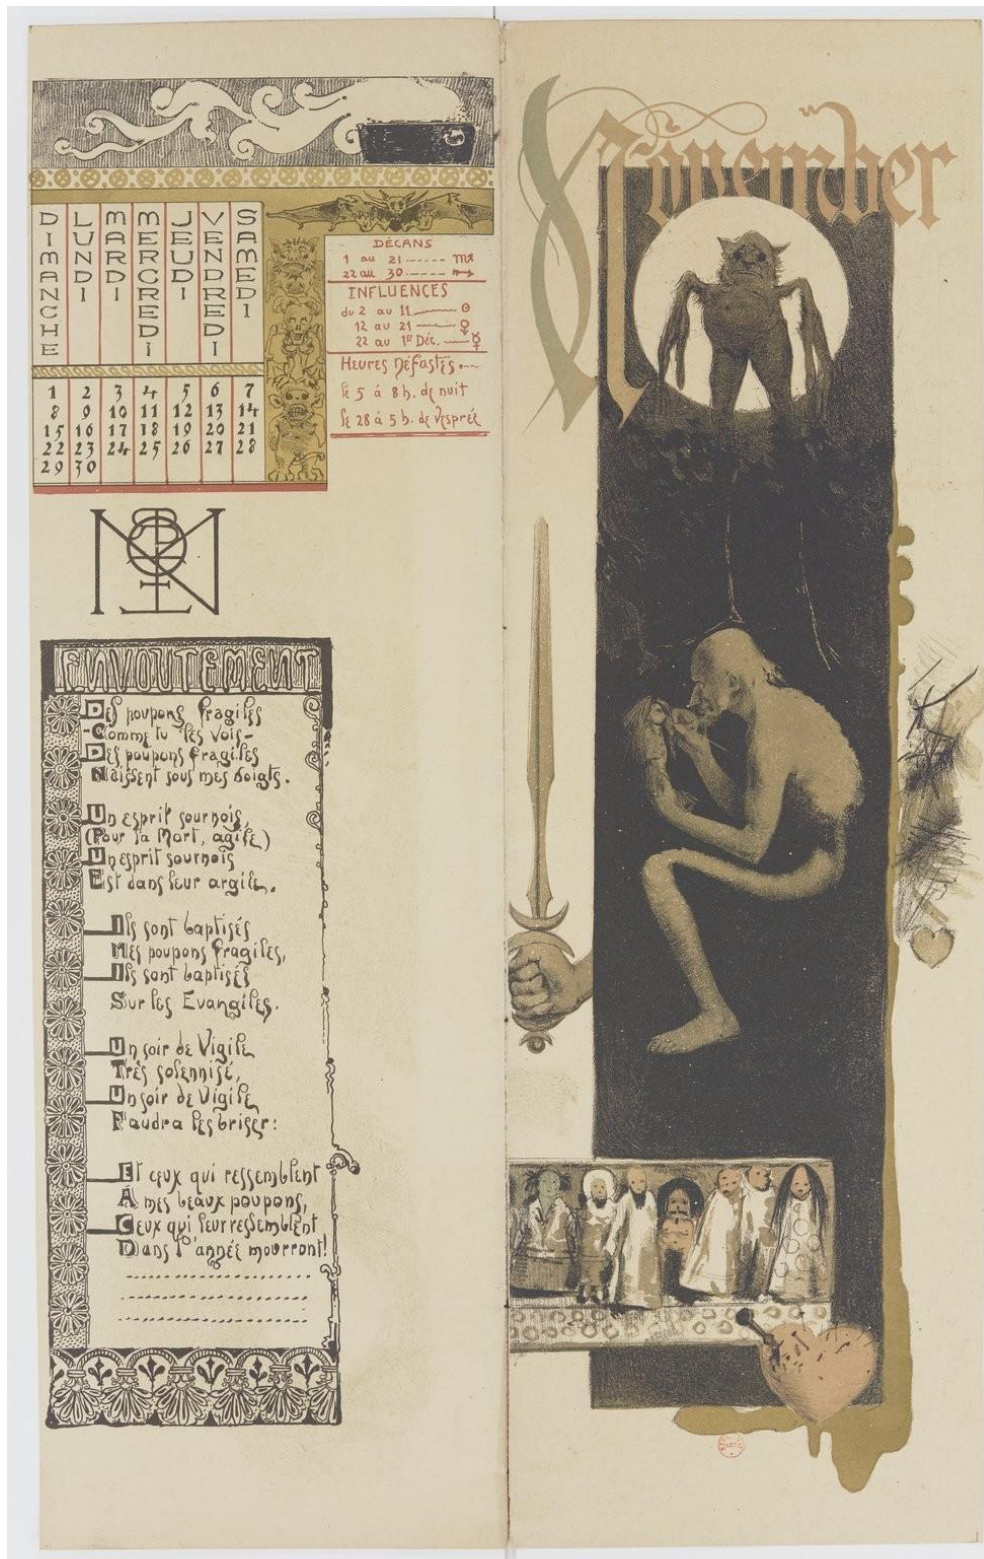 November
DIMANCHE LUNDI MARDI MERCREDI JEUDI VENDREDI SAMEDI
1 2 3 4 5 6 7
8 9 10 11 12 13 14
15 16 17 18 19 20 21
22 23 24 25 26 27 28
29 30
DÉCANS
1 au 21 ------ ♏
22 au 30 ----- ♐
INFLUENCES
du 2 au 11 — ☉
12 au 21 — ♀
22 au 1er Déc. — ☿
Heures Néfastes....
le 5 à 8h. de nuit
le 28 à 5 h. de vesprée
ENVOUTEMENT
Des poupons fragiles
-Comme tu les vois-
Des poupons fragiles
Naissent sous mes doigts.
Un esprit sournois,
(Pour la Mort, agile)
Un esprit sournois
Est dans leur argile.
Ils sont baptisés
Mes poupons fragiles,
Ils sont baptisés
Sur les Evangiles.
Un soir de Vigile
Très solennisé,
Un soir de Vigile
Faudra les briser:
Et ceux qui ressemblent
A mes beaux poupons,
Ceux qui leur ressemblent
Dans l'année mourront!